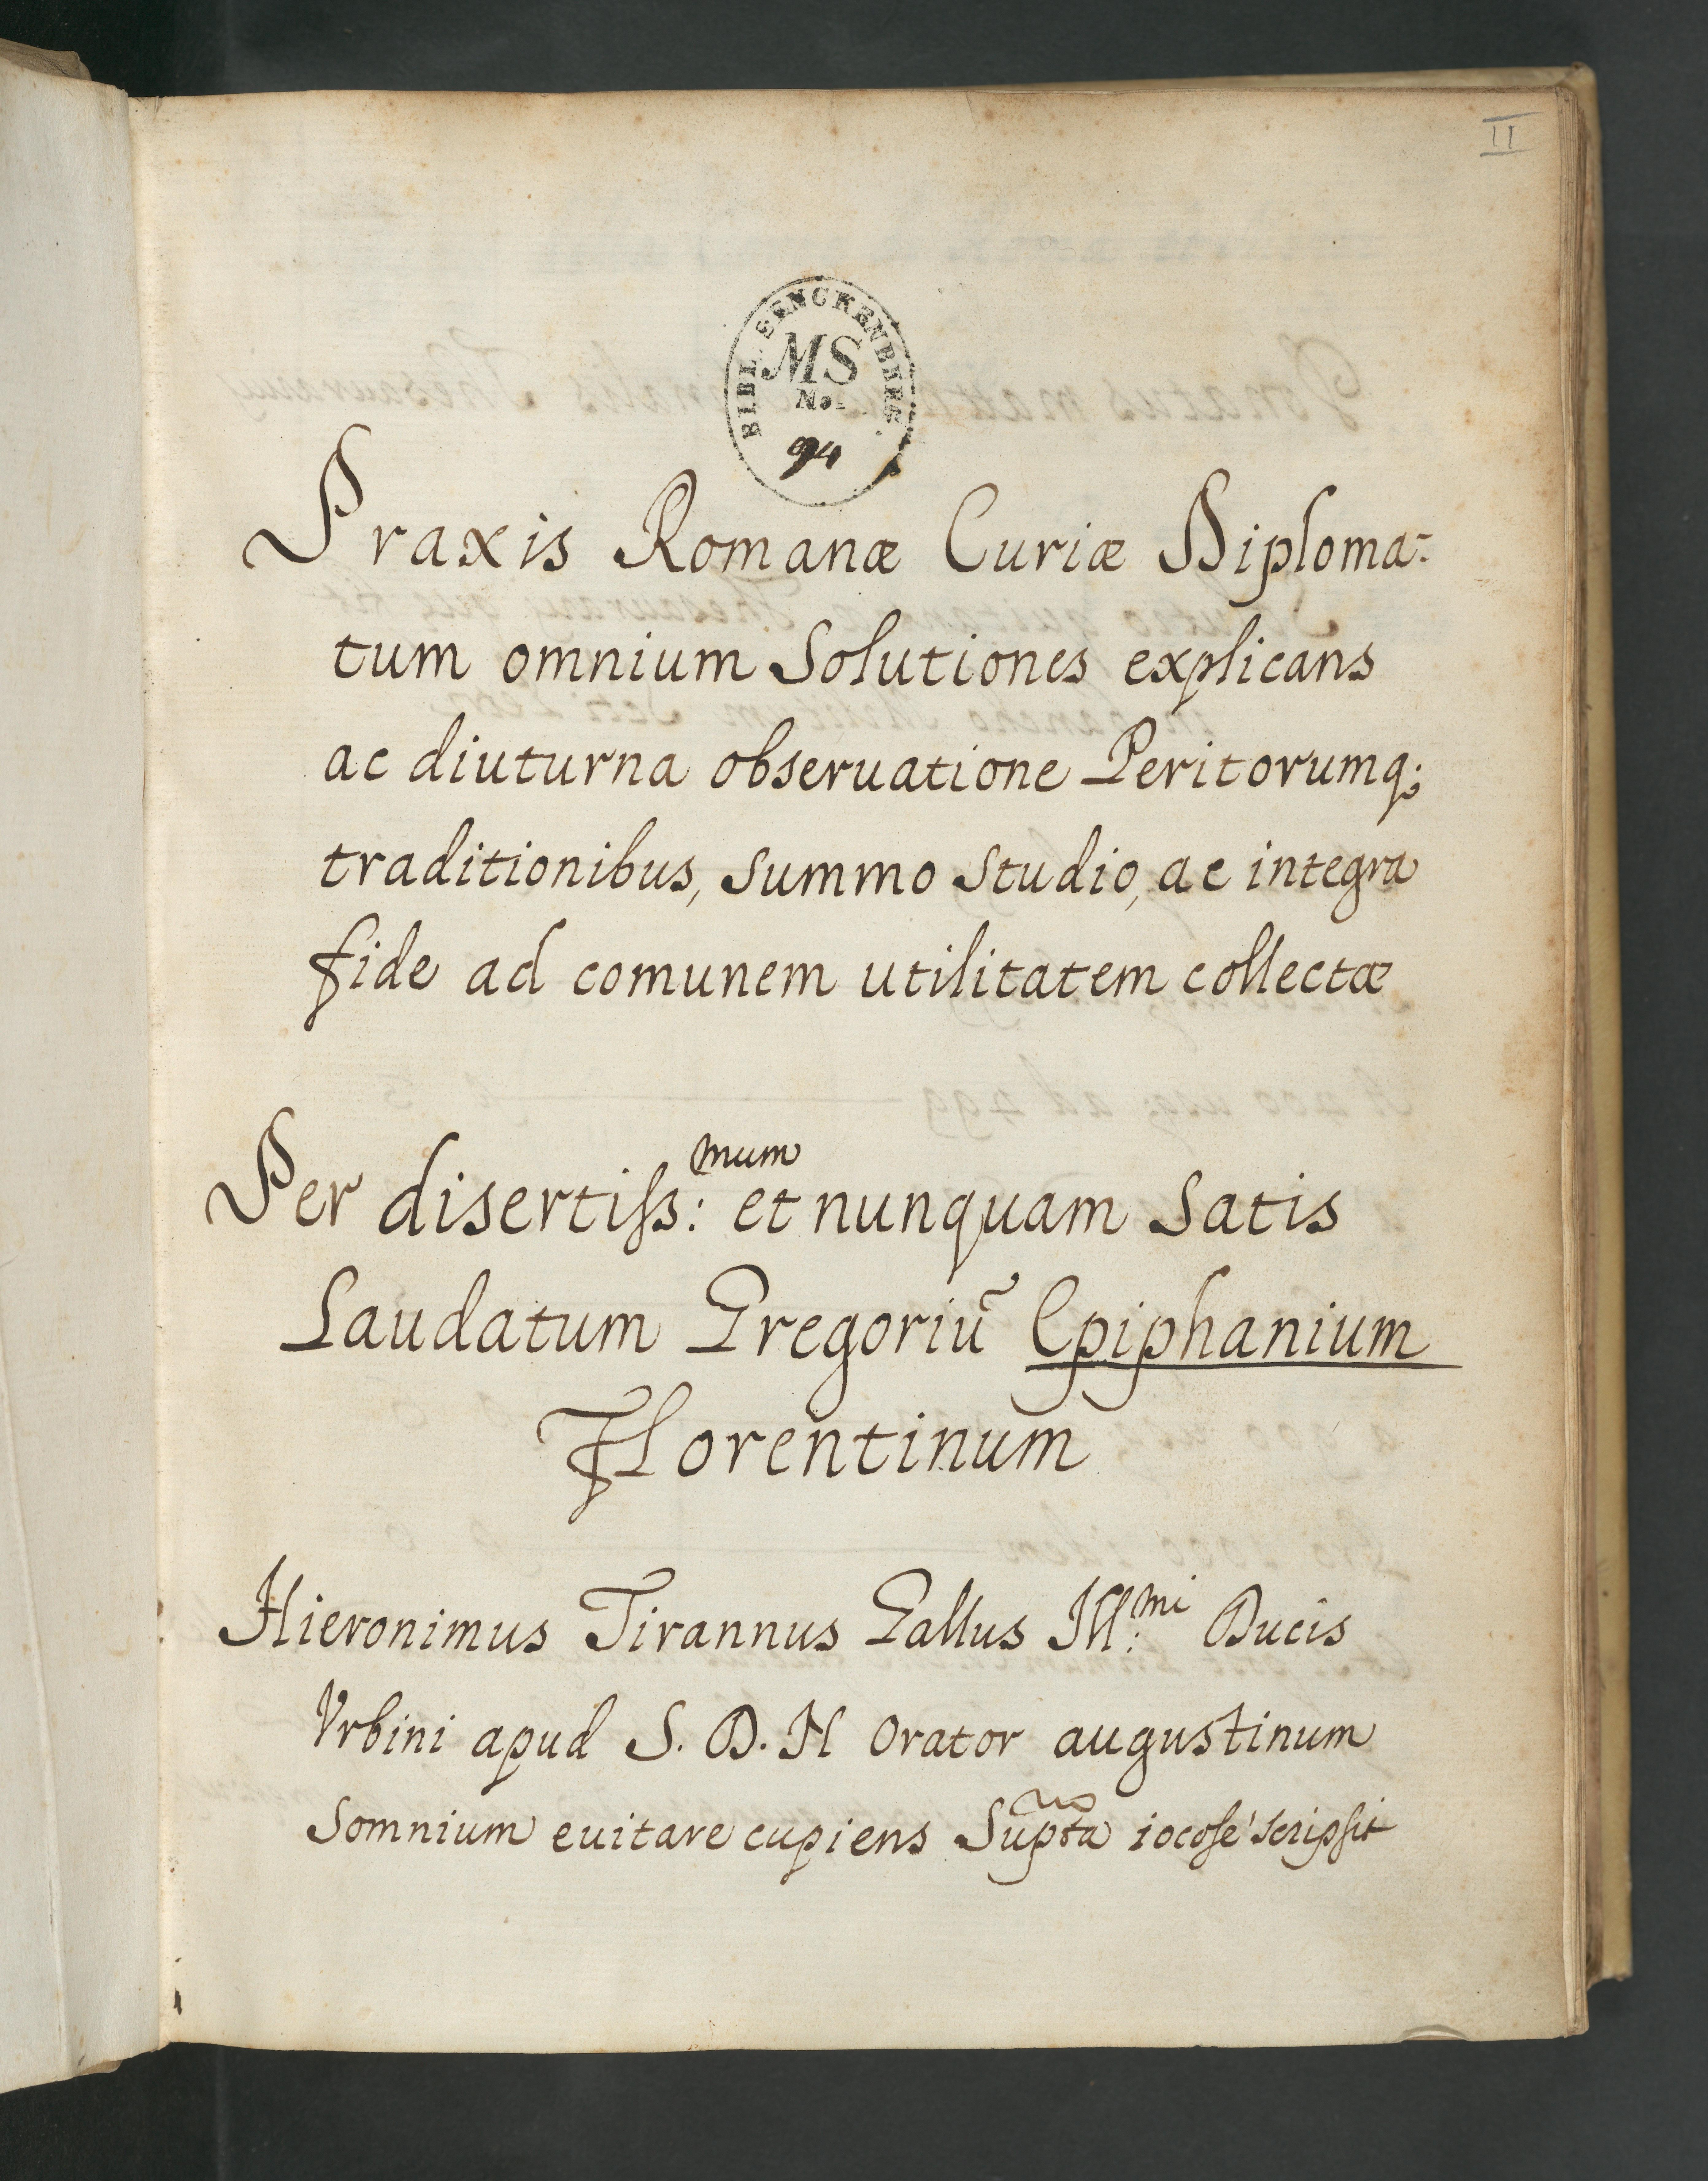 II
BIBL. SENCKENBERG.
MS
No.
94
Praxis Romanæ Curiæ Diploma-
tum omnium Solutiones explicans
ac diuturna obseruatione Peritorumq;
traditionibus, summo studio, ac integra
fide ad comunem utilitatem collectæ
Per disertiſs:mum et nunquam satis
Laudatum Gregoriũ Epiphanium
Florentinum
Hieronimus Tirannus Gallus Ill:mi Ducis
Vrbini apud S. D. N Orator augustinum
Somnium euitare cupiens Supta iocoſe scripſit